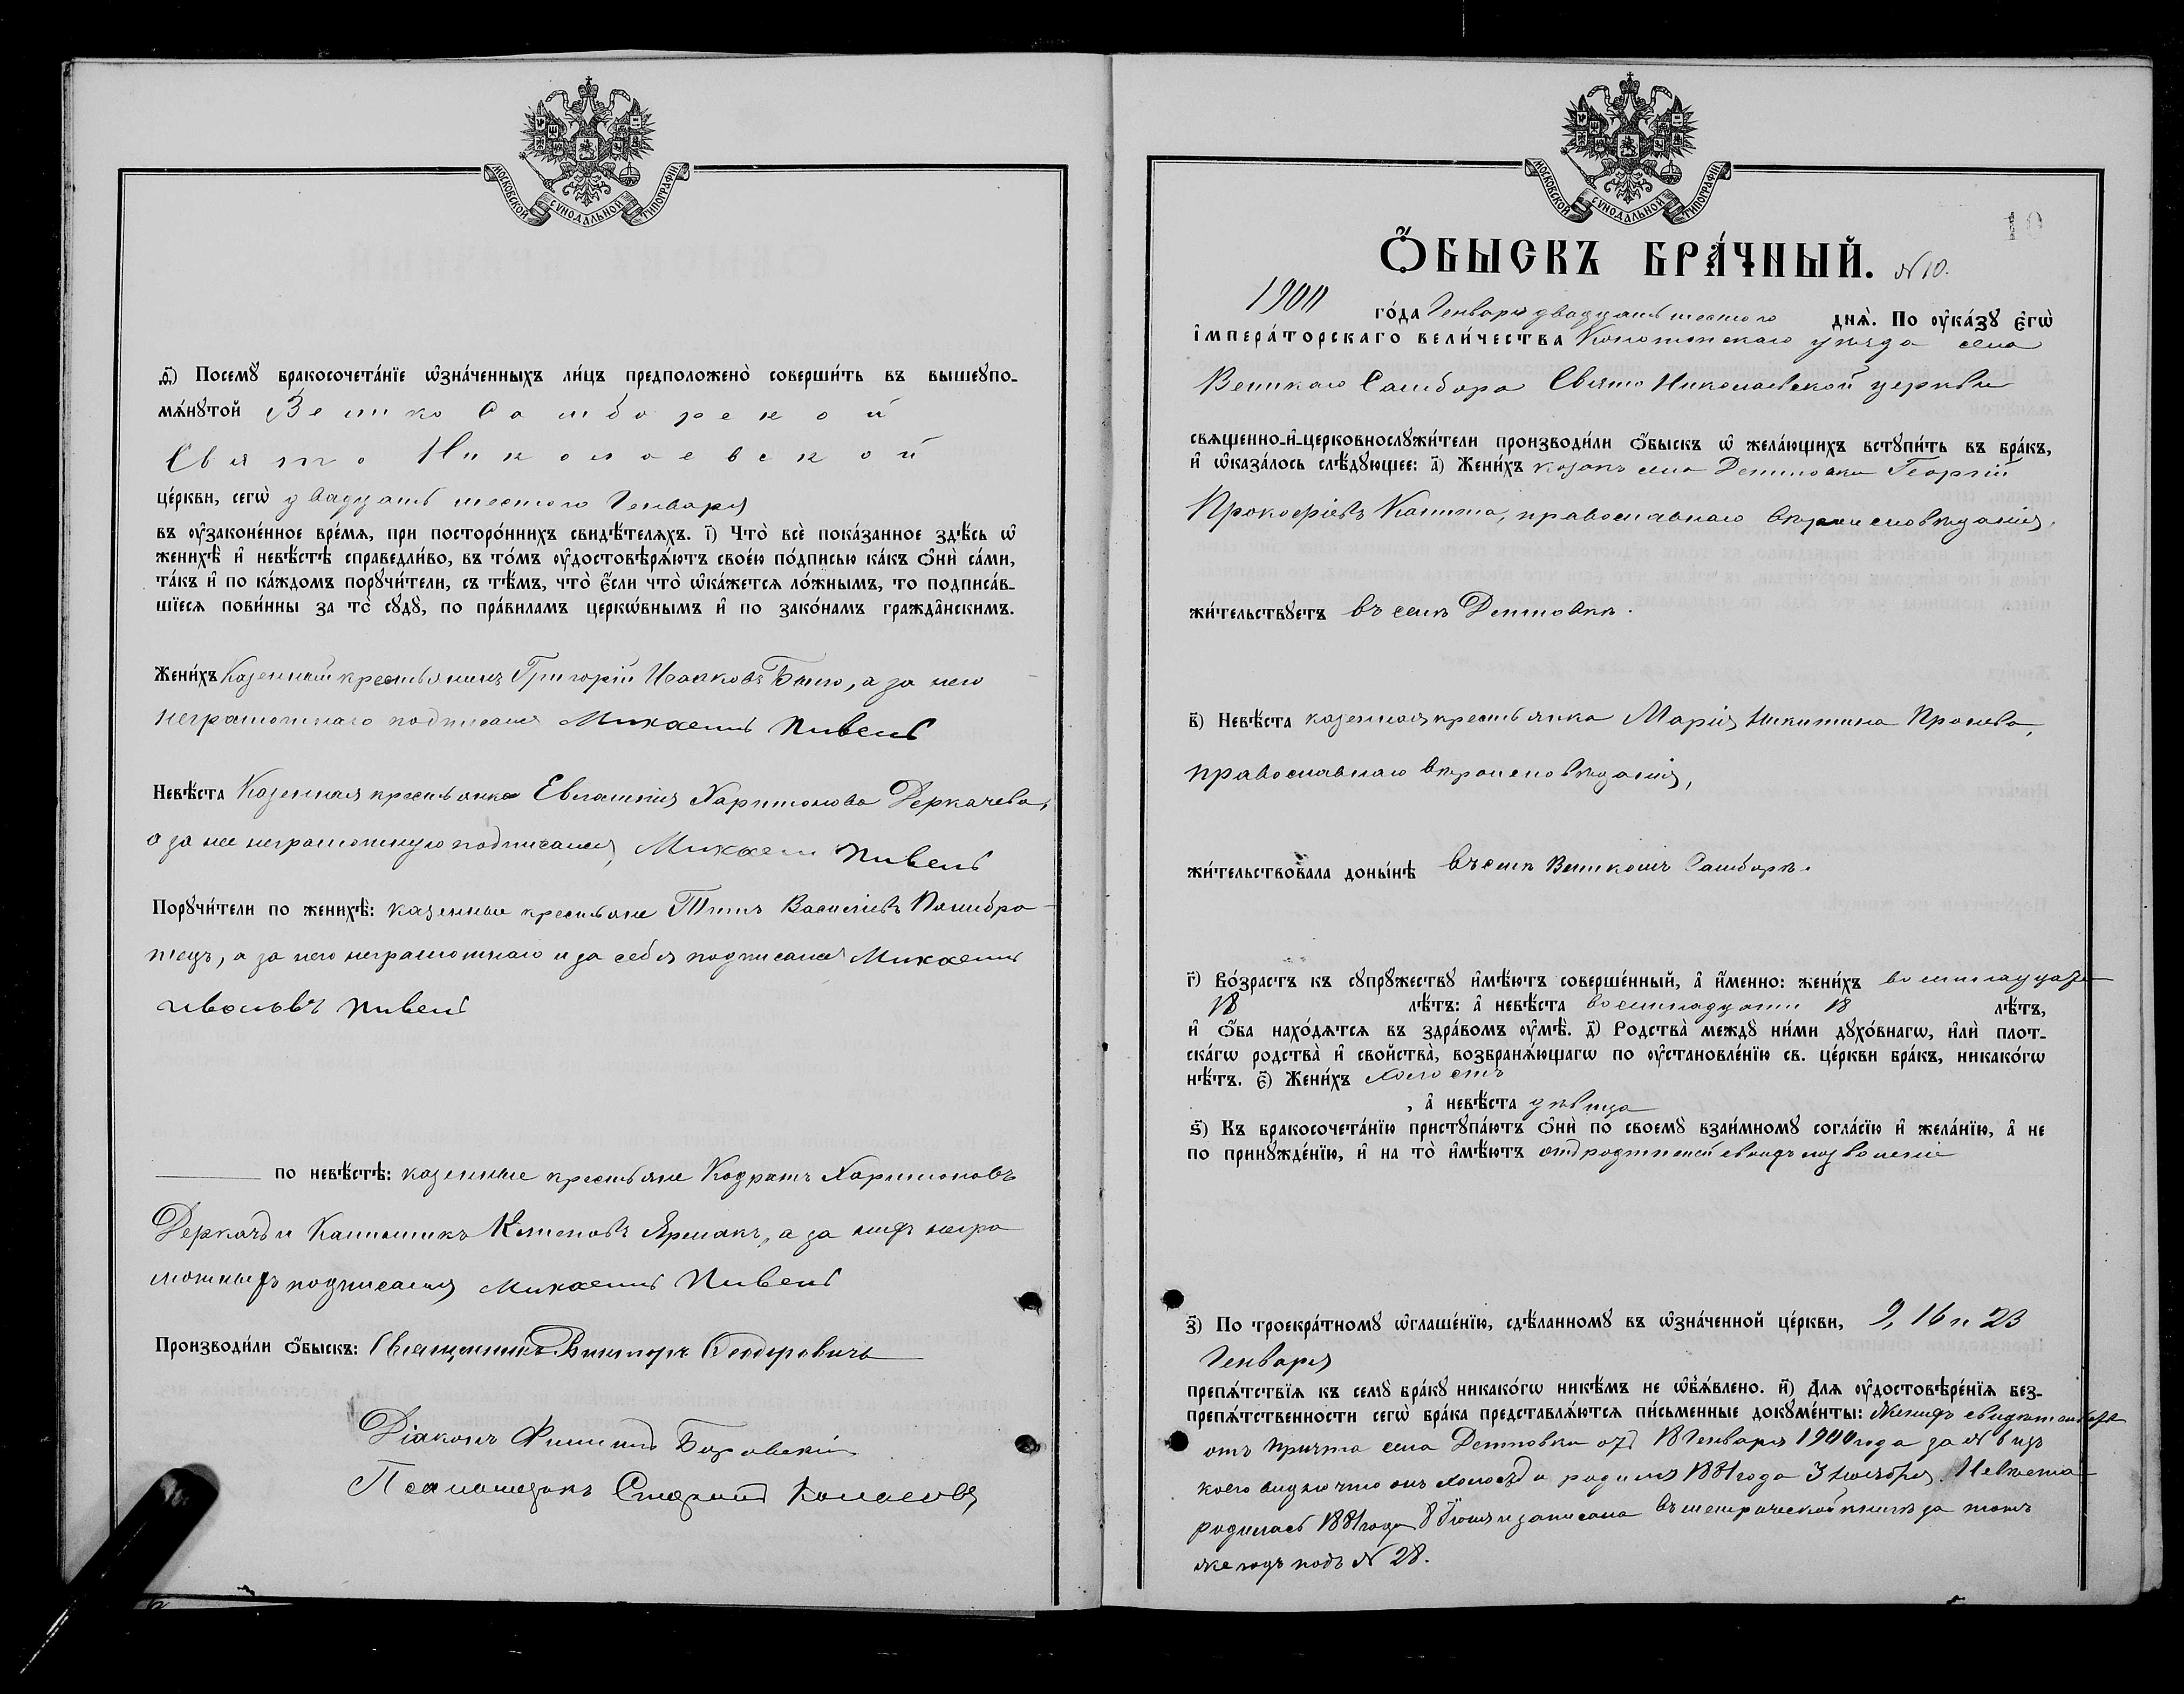 МОСКОВСКОЙ СѴНОДАЛЬНОЙ ТИПОГРАФІИ
ѳ҃) Посемꙋ̀ бракосочета́нїе ѡ҆зна́ченныхъ ли́цъ предположено̀ соверши́ть въ вышеꙋпо-
мѧ́нꙋтой Велико Самборской
Свято Николаевской
це́ркви, сегѡ̀ двадцать шестого Генваря
въ ᲂу҆законе́нное вре́мѧ, при посторо́ннихъ свидѣ́телѧхъ. і҃) Что̀ всѐ пока́занное здѣ́сь ѡ҆
женихѣ̀ и҆ невѣ́стѣ справедли́во, въ то́мъ ᲂу҆достовѣрѧ́ютъ свое́ю по́дписью ка́къ ѻ҆нѝ са́ми,
та́къ и҆ по ка́ждомъ порꙋчи́тели, съ тѣ́мъ, что̀ є҆́сли что̀ ѡ҆ка́жетсѧ ло́жнымъ, то подписа́в-
шїесѧ пови́нны за то̀ сꙋдꙋ̀, по пра́виламъ церкѡ́внымъ и҆ по зако́намъ гражда̂нскимъ.
Жени́хъ Казенный крестьянинъ Григорій Исааковъ, а за него
неграмотнаго подписался Михаилъ Пивень
Невѣ́ста Казенная крестьянка Харитонова Деркачева,
а за нее неграмотную подписался Михаилъ Пивень
Порꙋчи́тели по женихѣ̀: казенные крестьяне Титъ Васильевъ
а за него неграмотнаго и за себя подписался Михаилъ
Пивень
по невѣ́стѣ: казенные крестьяне Кодратъ Харитоновъ
Деркачъ и Ярмакъ, а за нихъ негра
мотныхъ подписался Михаилъ Пивень
Производи́ли ѻ҆́быскъ: Священникъ Викторъ Ѳеодоровичъ
Діаконъ Филиппъ Боровскій
Псаломщикъ Стефанъ
МОСКОВСКОЙ СѴНОДАЛЬНОЙ ТИПОГРАФІИ
10
Ѻ҆́БЫСКЪ БРА́ЧНЫЙ. № 10.
1900 го́да Генваря двадцать шестого днѧ̀. По ᲂу҆ка́зꙋ є҆гѡ̀
і҆мпера́торскаго вели́чества Конотопскаго уѣзда села
Великаго Самбора Свято Николаевской церкви
свѧщенно-и҆-церковнослꙋжи́тели производи́ли ѻ҆́быскъ ѡ҆ жела́ющихъ встꙋпи́ть въ бра́къ,
и҆ ѡ҆каза́лось слѣ́дꙋющее: а҃) Жени́хъ козакъ села Дептовки Георгій
Прокофіевъ Капита, православнаго вѣроисповѣданія,
жи́тельствꙋетъ въ селѣ Дептовкѣ.
в҃) Невѣ́ста казенная крестьянка Марія Никитина
православнаго вѣроисповѣданія,
жи́тельствовала доны́нѣ въ селѣ Великомъ Самборѣ.
г҃) Во́зрастъ къ сꙋпрꙋ́жествꙋ и҆мѣ́ютъ соверше́нный, а҆ и҆́менно: жени́хъ восемнадцати
18 лѣ́тъ: а҆ невѣ́ста восемнадцати 18 лѣ́тъ,
и҆ ѻ҆́ба нахо́дѧтсѧ въ здра́вомъ ᲂу҆мѣ̀. д҃) Родства̀ междꙋ̀ ни́ми дꙋхо́внагѡ, и҆лѝ плот-
ска́гѡ родства̀ и҆ свойства̀, возбранѧ́ющагѡ по ᲂу҆становле́нїю св. це́ркви бра́къ, никако́гѡ
нѣ́тъ. є҃) Жени́хъ холостъ
, а҆ невѣ́ста дѣвица
ѕ҃) Къ бракосочета́нїю пристꙋпа́ютъ ѻ҆нѝ по своемꙋ̀ взаи́мномꙋ согла́сїю и҆ жела́нїю, а҆ не
по принꙋжде́нїю, и҆ на то̀ и҆мѣ́ютъ отъ родителей своихъ позволеніе
з҃) По троекра́тномꙋ ѡ҆глаше́нїю, сдѣ́ланномꙋ въ ѡ҆зна́ченной це́ркви, 9, 16 и 23
Генваря
препѧ́тствїѧ къ семꙋ̀ бра́кꙋ никако́гѡ никѣ́мъ не ѡ҆б̾ѧ́влено. и҃) Длѧ ᲂу҆достовѣре́нїѧ без-
препѧ́тственности сегѡ̀ бра́ка представлѧ́ютсѧ пи́сьменные докꙋме́нты: Жениха свидѣтельство
отъ причта села Дептовки отъ 18 Генваря 1900 года за № 6 изъ
коего видно что онъ холостъ и родился 1881 года 3 Ноября. Невѣста
родилась 1881 года 8 и записана въ метрической книгѣ за тотъ
же годъ подъ № 28.